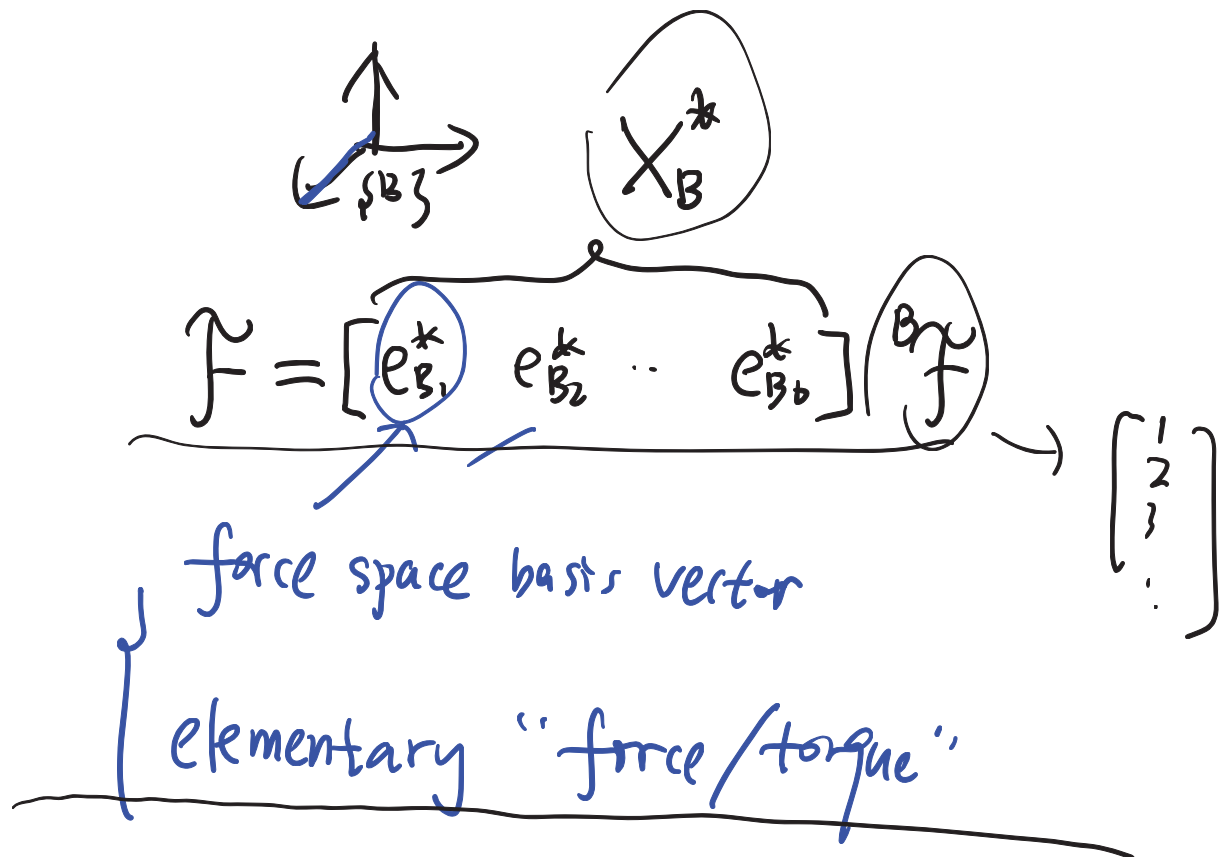 X*_B
{B}
F = [e*_{B_1} e*_{B_2} .. e*_{B_6}] ^B F
[1
2
3
.
.]
force space basis vector
elementary "force/torque"